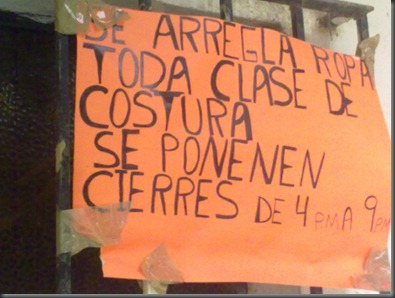 SE ARREGLA ROPA
TODA CLASE DE
COSTURA
SE PONENEN
CIERRES DE 4 P.M A 9 P.M